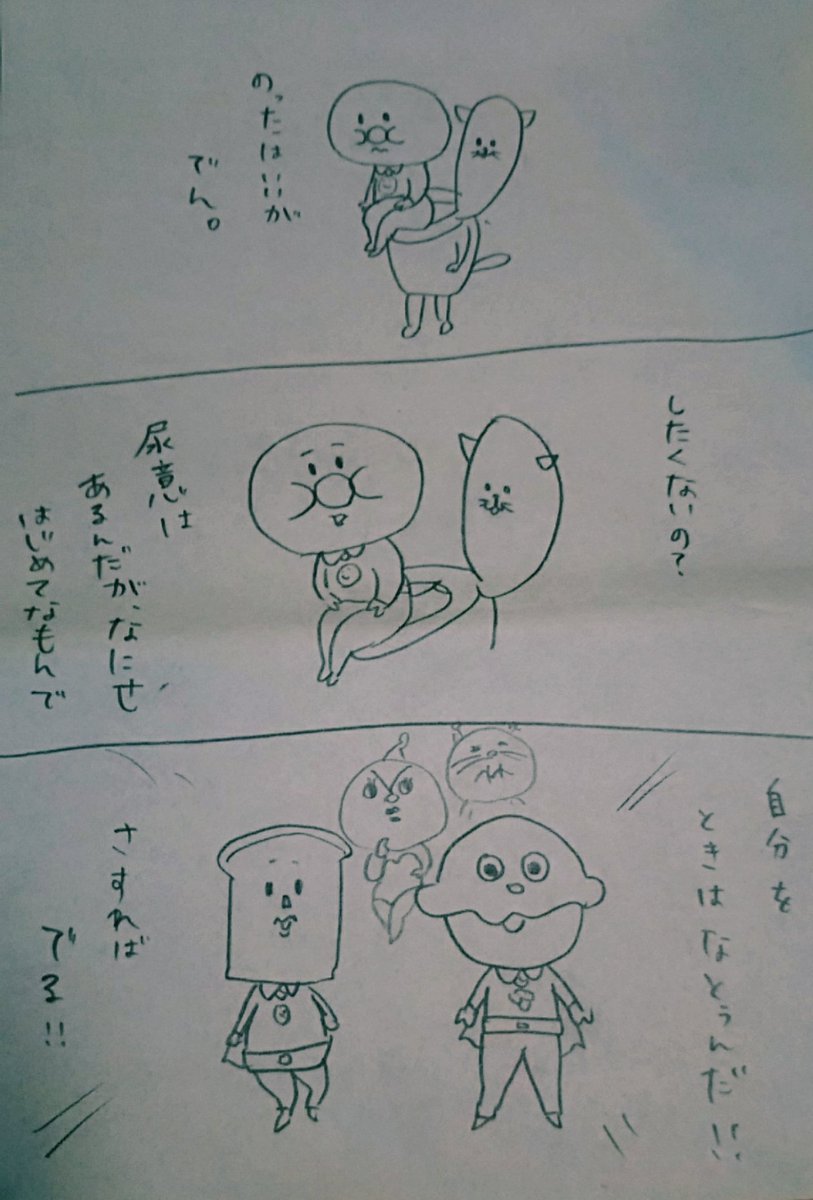 のったはいいが
でん。
したくないの？
尿意は
あるんだが、なにせ
はじめてなもんで
自分を
ときはなとぅんだ!!
さすれば
でる!!